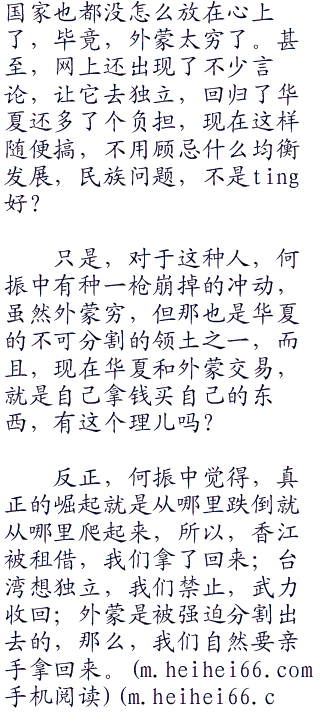 国家也都没怎么放在心上
了，毕竟，外蒙太穷了。甚
至，网上还出现了不少言
论，让它去独立，回归了华
夏还多了个负担，现在这样
随便搞，不用顾忌什么均衡
发展，民族问题，不是ting
好？
只是，对于这种人，何
振中有种一枪崩掉的冲动，
虽然外蒙穷，但那也是华夏
的不可分割的领土之一，而
且，现在华夏和外蒙交易，
就是自己拿钱买自己的东
西，有这个理儿吗？
反正，何振中觉得，真
正的崛起就是从哪里跌倒就
从哪里爬起来，所以，香江
被租借，我们拿了回来；台
湾想独立，我们禁止，武力
收回；外蒙是被强迫分割出
去的，那么，我们自然要亲
手拿回来。(m.heihei66.com
手机阅读)(m.heihei66.c